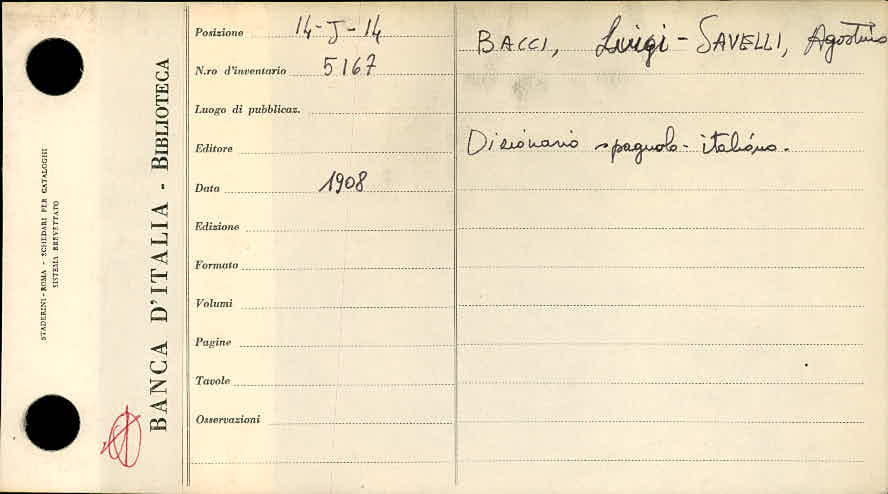 STADERINI - ROMA - SCHEDARI PER CATALOGHI
SISTEMA BREVETTATO
BANCA D'ITALIA - BIBLIOTECA
Posizione 14-J-14
N.ro d'inventario 5167
Luogo di pubblicaz.
Editore
Data 1908
Edizione
Formato
Volumi
Pagine
Tavole
Osservazioni
BACCI, Luigi - SAVELLI, Agostino
Dizionario spagnolo-italiano.